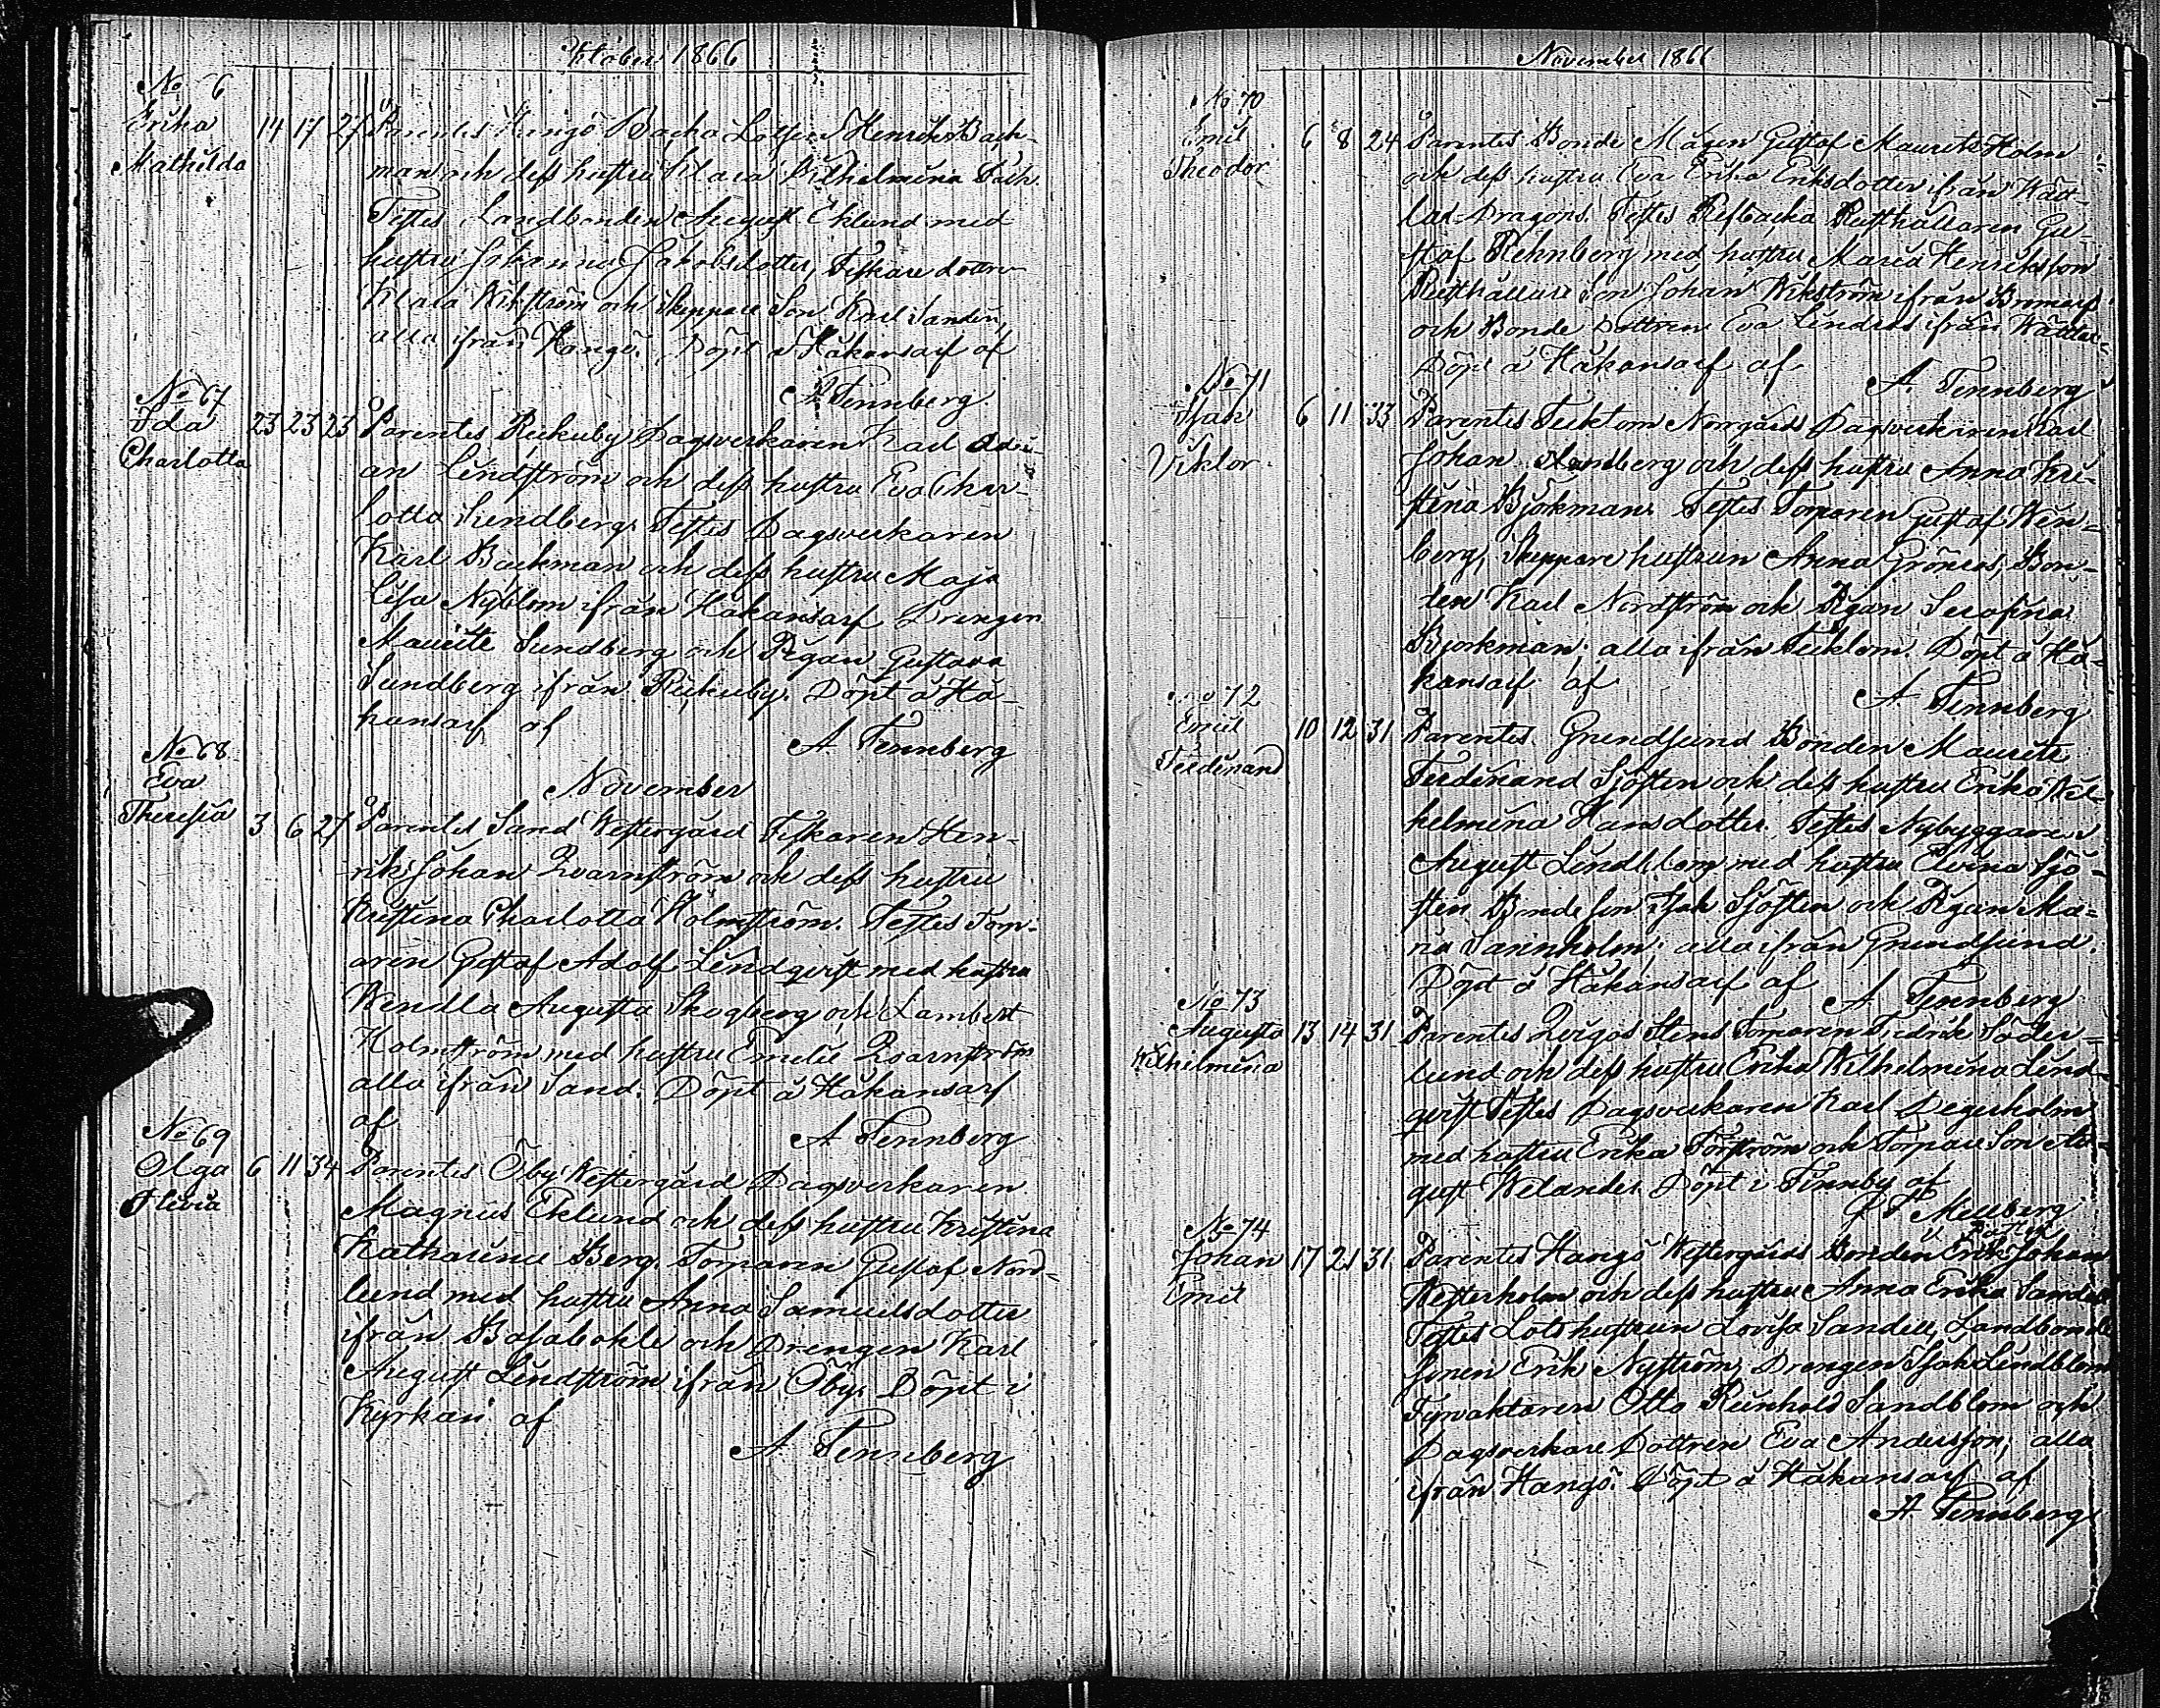 Oktober 1866
No 6
Erika
Mathilda
14 17 27 Parentes Hangö Backa Lotsen Henrik Back-
man och dess hustru Klara Wilhelmina
Testes Landbonden August Eklund med
hustru Johanna Jakobsdotter, Fiskare dottren
Klara Wikström och Skeppare Son Karl Sandin,
alla ifrån Hangö. Döpt å Håkansarf af
A Tennberg
No 67
Ida
Charlotta
23 23 23 Parentes Rickuby Dagsverkaren Karl Adri-
an Lindström och dess hustru Eva Char-
lotta Sundberg. Testes Dagsverkaren
Karl Backman och dess hustru Maja
Lisa Nyblom ifrån Håkansarf Drengen
Maurits Sundberg och Pigan Gustava
Sundberg ifrån Rickuby. Döpt å Hå-
kansarf af
A Tennberg
November
No 68
Eva
Theresia
3 6 27 Parentes Sand Westergård Fiskaren Hen-
rik Johan Qvarnström och dess hustru
Kristina Charlotta Holmström. Testes Torp-
aren Gustaf Adolf Lindqvist med hustru
Wendla Augusta Skogberg och Lambert
Holmström med hustru Emelie Qvarnström
alla ifrån Sand. Döpt å Håkansarf
af
A Tennberg
No 69
Olga
Olivia
6 11 34 Parentes Öby Westergård Dagsverkaren
Magnus Eklund och dess hustru Kristina
Katharina Berg. Torparen Gustaf Nord-
lund med hustru Anna Samuelsdotter
ifrån Basaböhle och Drengen Karl
August Lindström ifrån Öby. Döpt i
Kyrkan af
A Tennberg
November 1866
No 70
Emil
Theodor
6 8 24 Parentes Bonde Mågen Gustaf Maurits Holm
och dess hustru Eva Erika Eriksdotter ifrån Wät-
lax Dragons. Testes Refbacka Rusthållaren Gu-
staf Rehnberg med hustru Maria Henriksson
Rusthållare Son Johan Wikström ifrån Bromarf
och Bonde Dottren Eva Lindros ifrån Wättlax
Döpt å Håkansarf af
A. Tennberg
No 71
Isak
Viktor
6 11 33 Parentes Tecktom Norrgårds Dagsverkaren Karl
Johan Sandberg och dess hustru Anna Kri-
stina Björkman. Testes Torparen Gustaf Wen-
berg, Skeppare hustrun Anna Grönros, Bon-
den Karl Nordström och Pigan Serafina
Björkman; alla ifrån Tecktom. Döpt å Hå-
kansarf af
A. Tennberg
No 72
Emil
Ferdinand
10 12 31 Parentes Grundsund Bonden Maurits
Ferdinand Sjösten och dess hustru Erika Wil-
helmina Hansdotter. Testes Nybyggaren
August Lindblom med hustru Elvina Sjö-
sten Bonde son Isak Sjösten och Pigan Ma-
ria Sarinholm; alla ifrån Grundsund.
Döpt å Håkansarf af
A Tennberg
No 73
Augusta
Wilhelmina
13 14 31 Parentes Qvigos Stens Torparen Fredrik Söder-
lund och dess hustru Erika Wilhelmina Lind-
qvist Testes Dagsverkaren Karl Degerholm
med hustru Erika Forström och Torpare Son Au-
gust Welander. Döpt i Finnby af
Mellberg
No 74
Johan
Emil
17 21 31 Parentes Hangö Westergårds Bonden Erik Johan
Westerholm och dess hustru Anna Erika Sandell
Testes Lotshustrun Lovisa Sandell, Landbonde
sonen Erik Nyström, Drengen Isak Lindblom
Fyrvaktaren Otto Reinhold Sandblom och
Dagsverkare Dottren Eva Andersson; alla
ifrån Hangö. Döpt å Håkansarf af
A Tennberg